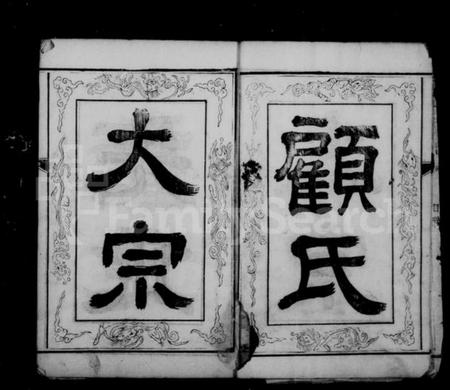 顧氏
大宗
FamilySearch